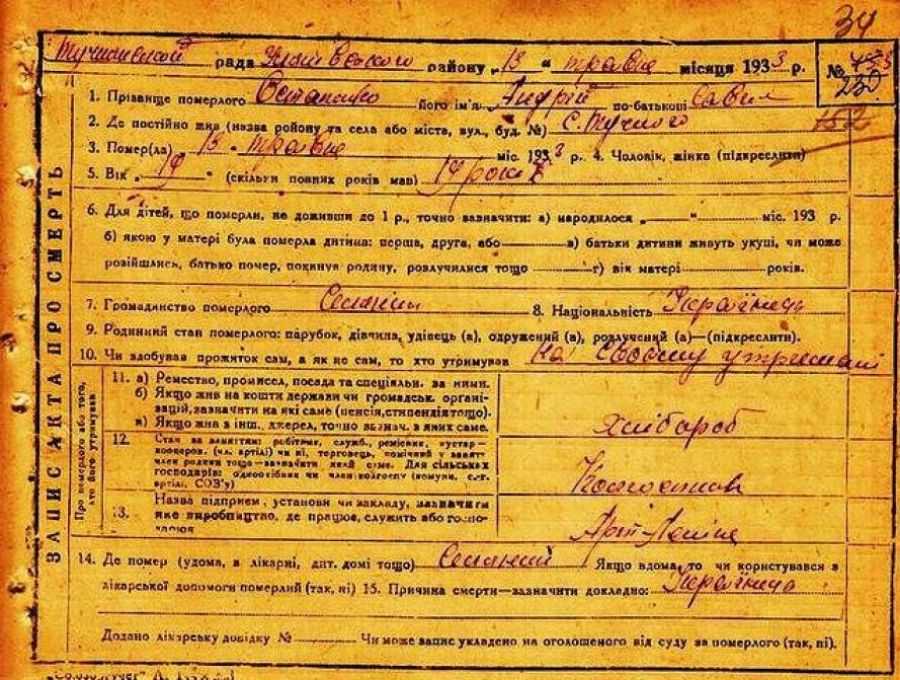 34
рада району „13 “ травня місяця 1933 р. №
230
1. Прізвище померлого Остапенко його ім'я Андрій по-батькові Савич
152
2. Де постійно жив (назва району та села або міста, вул., буд. №) с.
3. Помер(ла) 13 травня міс. 1933 р. 4. Чоловік, жінка (підкреслити)
5. Вік „ 19 “ (скільки повних років мав) 19 років
6. Для дітей, що померли, не доживши до 1 р., точно зазначити: а) народилося „ “ міс. 193 р.
б) якою у матері була померла дитина: перша, друга, або в) батьки дитини живуть укупі, чи може
розійшлись, батько помер, покинув родину, розлучилися тощо г) вік матері років.
7. Громадянство померлого Селянин 8. Національність Українець
9. Родинний стан померлого: парубок, дівчина, удівець (а), одружений (а), розлучений (а)—(підкреслити).
10. Чи здобував прожиток сам, а як не сам, то хто утримував На своєму утриманні
ЗАПИС АКТА ПРО СМЕРТЬ
Про померлого або того, хто його утримував
11. а) Ремество, промисел, посада та спеціяльн. за ними.
б) Якщо жив на кошти держави чи громадськ. органі-
зацій, зазначити на які саме (пенсія, стипендія тощо).
в) Якщо жив з інш. джерел, точно зазнач. з яких саме.
Хлібороб
12. Стан за заняттям: робітник, служб., ремісник, кустар—
кооперов. (чл. артілі) чи ні, торговець, помічний у занят.
член родини тощо—зазначити який саме. Для сільських
господарів: одноосібник чи член колгоспу (комуни, с.-г.
артілі, СОЗ'у)
13. Назва підприєм., установи чи закладу, зазначити
яке виробництво, де працює, служить або госпо-
Арт Леніна
14. Де помер (удома, в лікарні, дит. домі тощо) Селянин Якщо вдома, то чи користувався з
лікарської допомоги померлий (так, ні) 15. Причина смерти—зазначити докладно: Українець
Додано лікарську довідку № Чи може запис укладено на оголошеного від суду за померлого (так, ні).